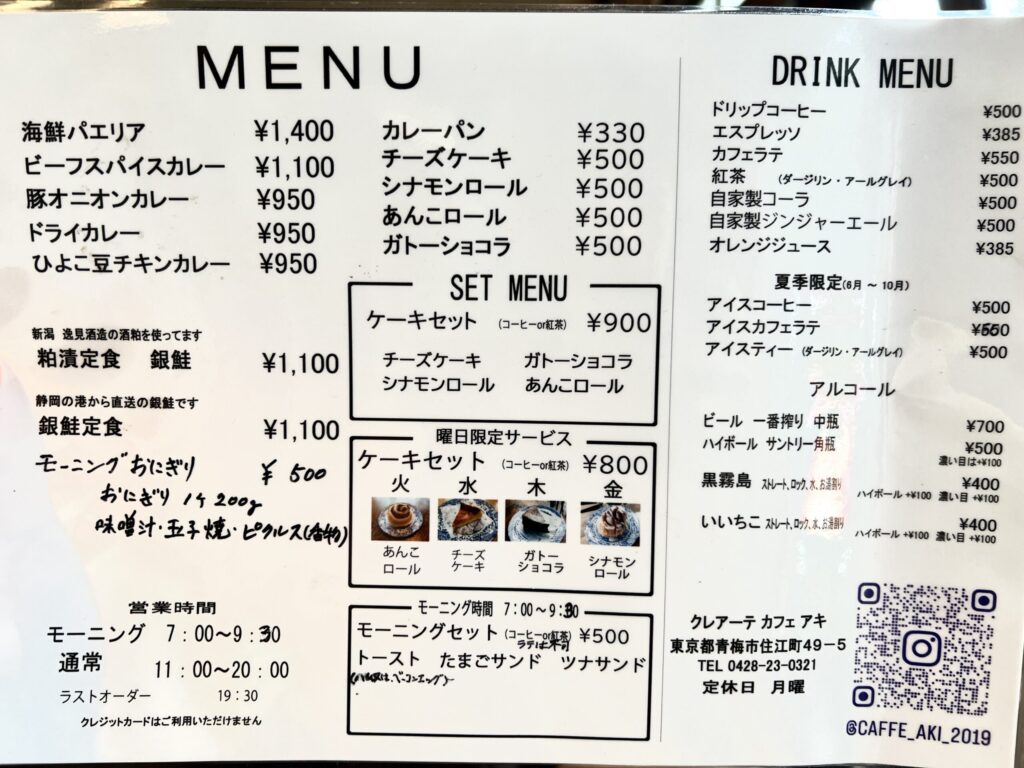 MENU
海鮮パエリア ¥1,400
ビーフスパイスカレー ¥1,100
豚オニオンカレー ¥950
ドライカレー ¥950
ひよこ豆チキンカレー ¥950
新潟 逸見酒造の酒粕を使ってます
粕漬定食 銀鮭 ¥1,100
静岡の港から直送の銀鮭です
銀鮭定食 ¥1,100
モーニングおにぎり ¥500
おにぎり 1ケ200g
味噌汁・玉子焼・ピクルス(香物)
営業時間
モーニング 7:00~9:30
通常 11:00~20:00
ラストオーダー 19:30
クレジットカードはご利用いただけません
カレーパン ¥330
チーズケーキ ¥500
シナモンロール ¥500
あんこロール ¥500
ガトーショコラ ¥500
SET MENU
ケーキセット (コーヒーor紅茶) ¥900
チーズケーキ ガトーショコラ
シナモンロール あんこロール
曜日限定サービス
ケーキセット (コーヒーor紅茶) ¥800
火 水 木 金
あんこロール チーズケーキ ガトーショコラ シナモンロール
モーニング時間 7:00~9:30
モーニングセット (コーヒーor紅茶) ¥500
トースト たまごサンド ツナサンド
DRINK MENU
ドリップコーヒー ¥500
エスプレッソ ¥385
カフェラテ ¥550
紅茶 (ダージリン・アールグレイ) ¥500
自家製コーラ ¥500
自家製ジンジャーエール ¥500
オレンジジュース ¥385
夏季限定(6月 ~ 10月)
アイスコーヒー ¥500
アイスカフェラテ ¥550
アイスティー (ダージリン・アールグレイ) ¥500
アルコール
ビール 一番搾り 中瓶 ¥700
ハイボール サントリー角瓶 ¥500
濃い目は+¥100
黒霧島 ストレート、ロック、水、お湯割り ¥400
ハイボール +¥100 濃い目 +¥100
いいちこ ストレート、ロック、水、お湯割り ¥400
ハイボール +¥100 濃い目 +¥100
クレアーテ カフェ アキ
東京都青梅市住江町49-5
TEL 0428-23-0321
定休日 月曜
@CAFFE_AKI_2019